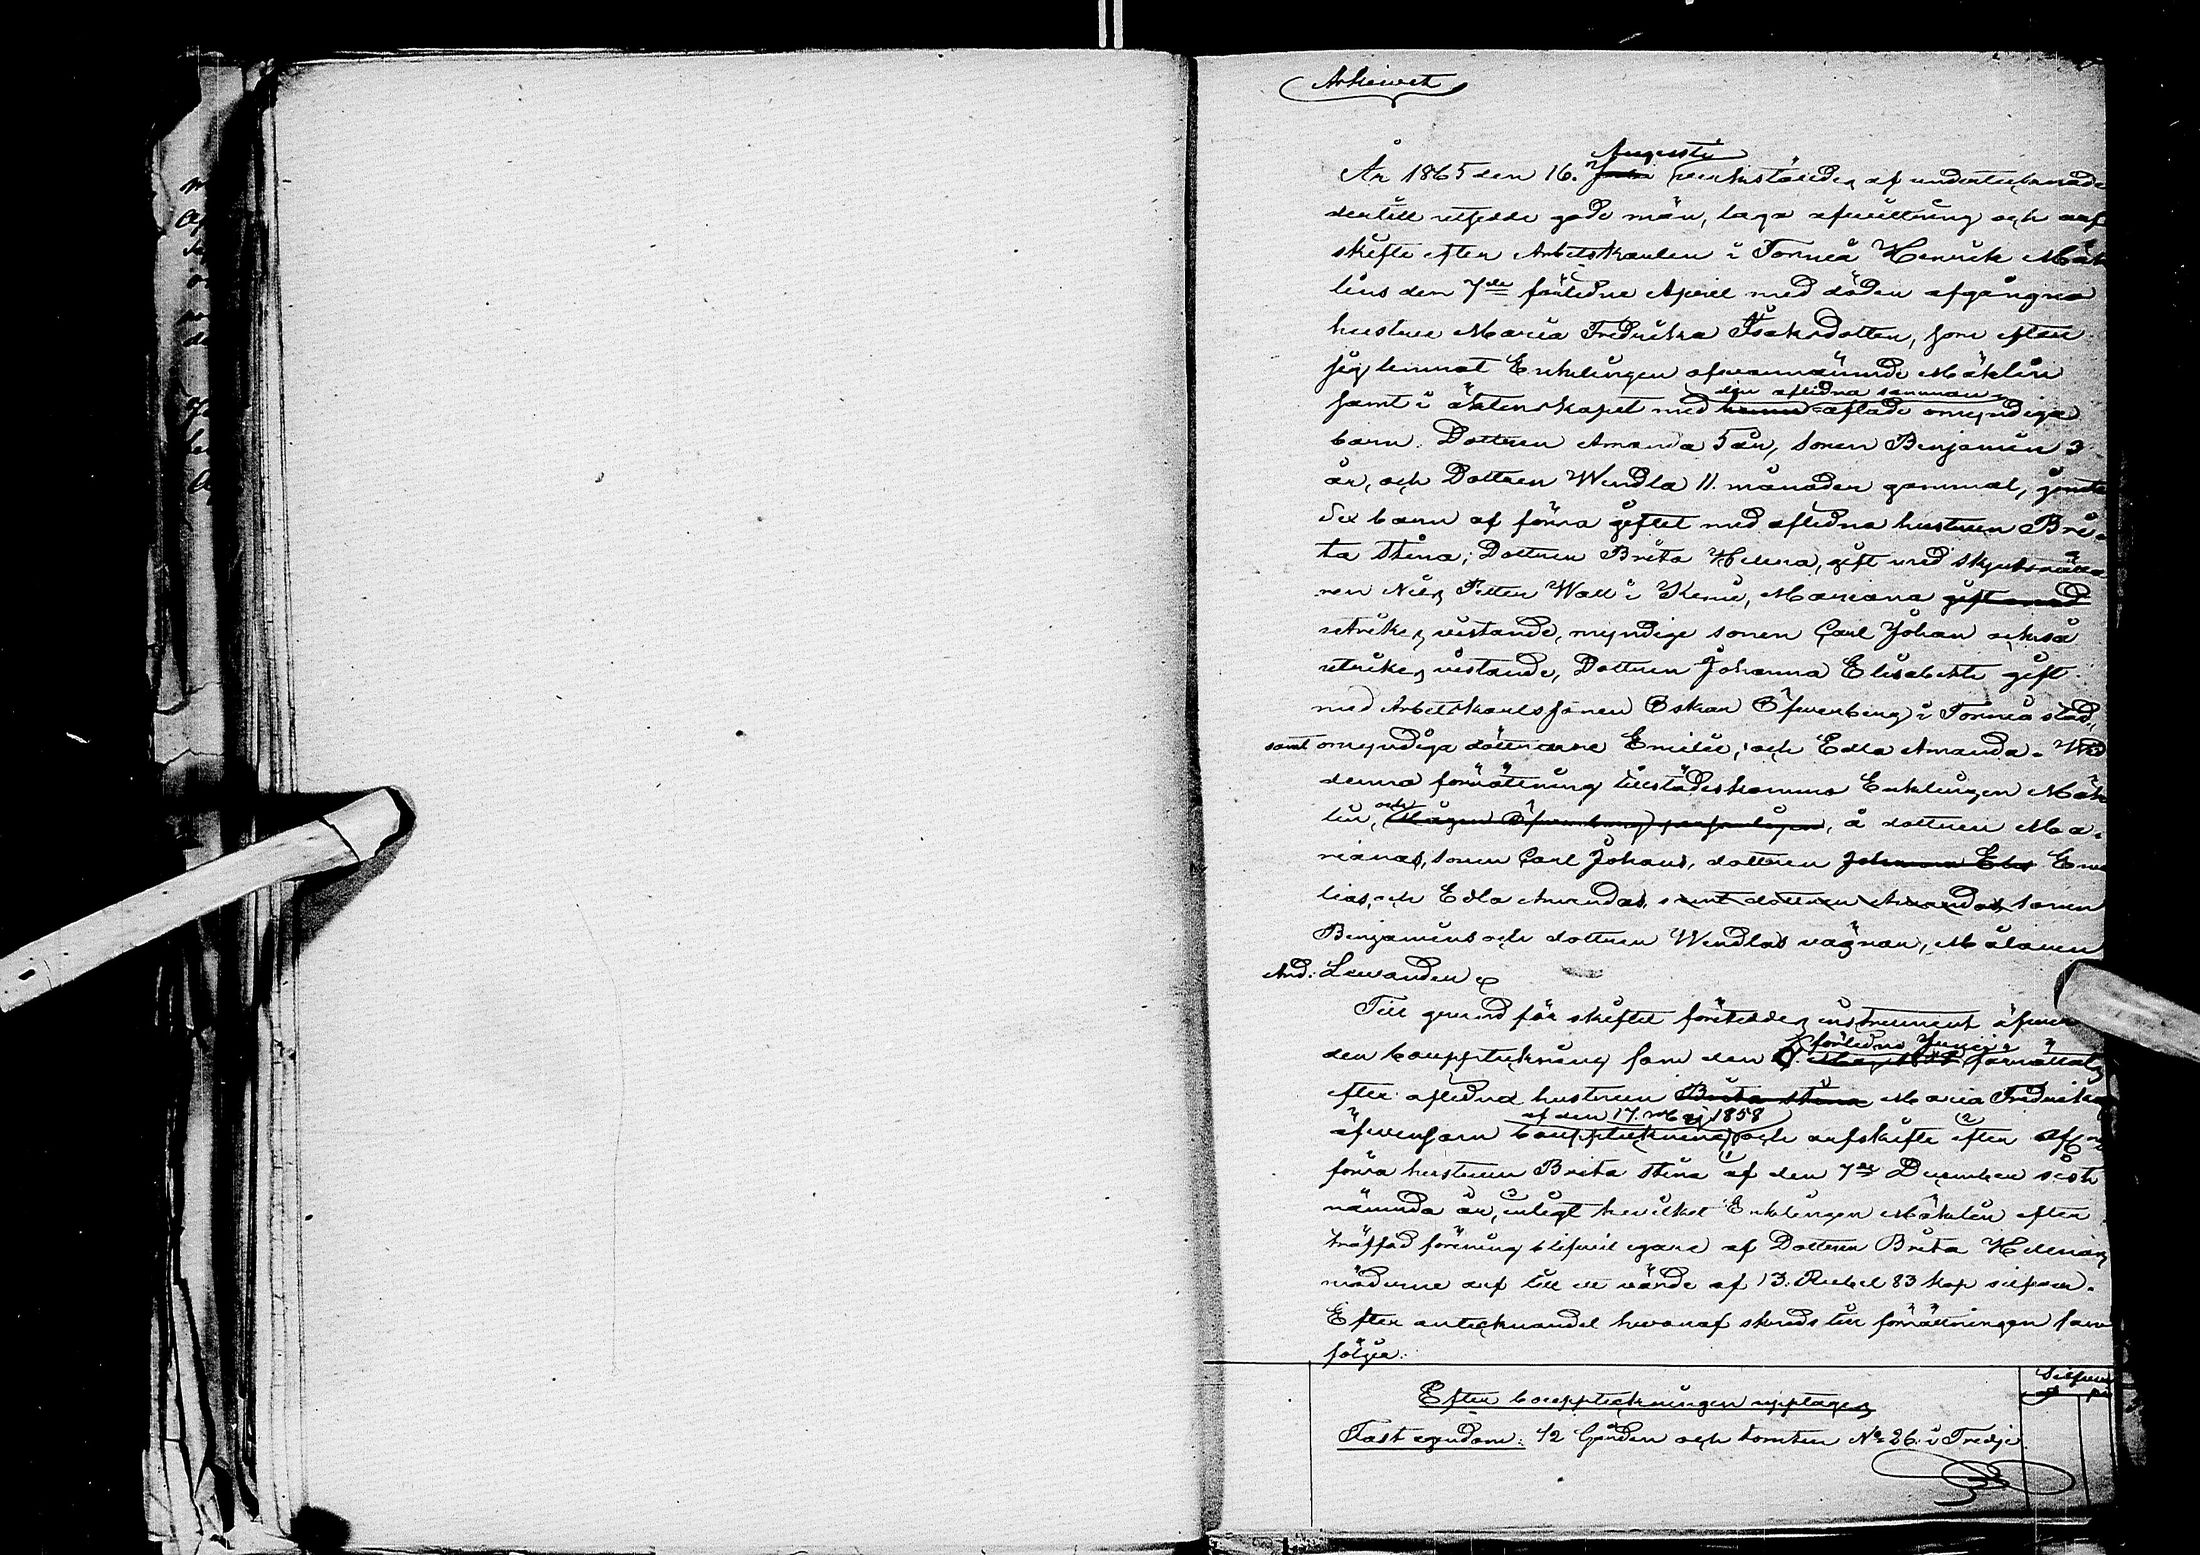 Arkivet
Augusti
År 1865 den 16. Juli verkstäldes af undertecknade
dertill utsedde gode män, laga afwittring och arf
skifte efter Arbetskarlen i Torneå Henrick Mäk
lins den 7de förledne April med döden afgångna
hustru Maria Fredrika Isaksdotter, som efter
sig lemnat Enklingen ofvannämnde Mäklin
den aflidna samman
samt i äktenskapet med henne aflade omyndiga
barn. Dottren Amanda 5 år, sonen Benjamin 3
år, och Dottren Wendla 11. månader gammal, jemte
sex barn af förra giftet med aflidna hustrun Bri-
ta Stina; Dottren Brita Helena, gift med skjutsrätta
ren Nils Petter Wall i Kemi, Mariana gift med
utrikes vistande, myndige sonen Carl Johan också
utrikes vistande, Dottren Johanna Elisabeth gift
med Arbetskarlssonen Oskar Öfverberg i Torneå stad,
samt omyndiga döttrarne Emilie, och Edla Amanda. Wid
denna förrättning tillstädeskommo Enklingen Mäk
och
lin, Mågen Öfverberg personligen, å dottren Ma-
rianas, sonen Carl Johans, dottren Johanna Elis Emi
lias, och Edla Amandas, samt dottren Amandas, sonen
Benjamins och dottren Wendlas vägnar, Målaren
And: Lewanden.
Till grund för skiftet företeddes instrument öfver
förledne Junii
den bouppteckning som den Maj 1858 förrättats
efter aflidna hustrun Brita Stina Maria Fredrika
af den 17. Maj 1858
äfvensom bouppteckning och arfskifte efter
förra hustrun Brita Stina af den 7de December sist
nämnda år, enligt hvilket Enklingen Mäklin efter
träffad förening blifvit egare af Dottren Brita Helenas
möderne arf till ett värde af 13. Rubel 83 kop silfver.
Efter antecknandet hvaraf skreds till förrättningen som
följer:
Silfver
Efter bouppteckningen upptages
Fast egendom: 1/2 Gården och tomten No 26. i Tredje